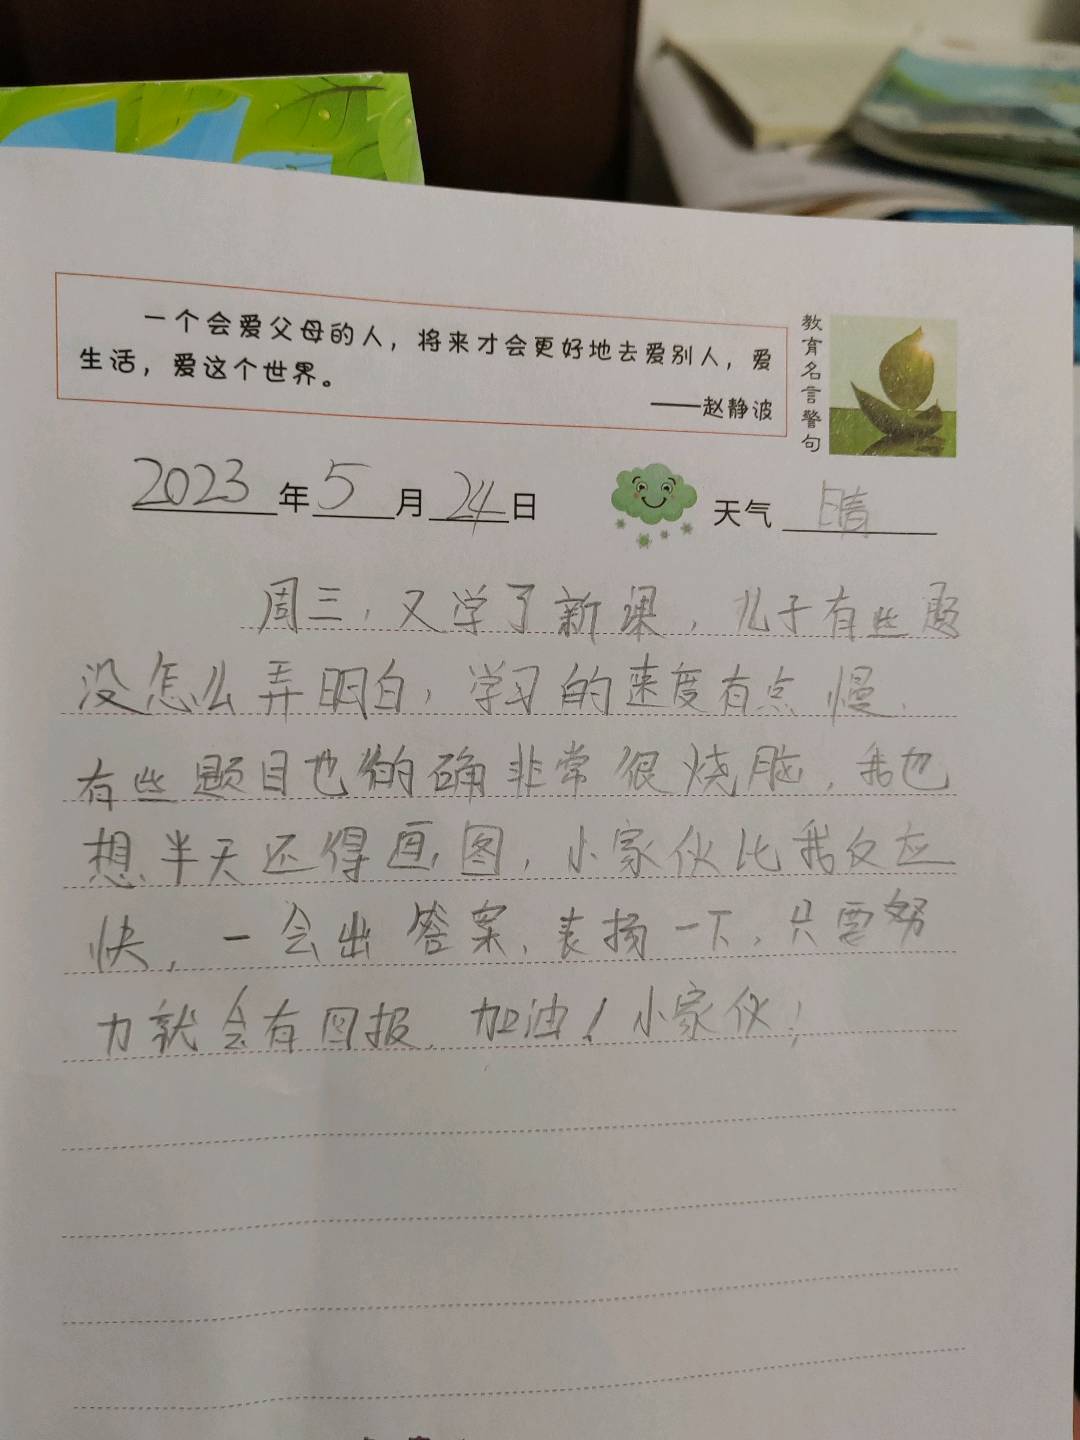 一个会爱父母的人，将来才会更好地去爱别人，爱
生活，爱这个世界。
——赵静波
教育名言警句
2023年5月24日 天气 晴
周三，又学了新课，儿子有些题
没怎么弄明白，学习的速度有点慢.
有些题目也的确非常很烧脑，我也
想半天还得画图，小家伙比我反应
快，一会出答案，表扬一下，只要努
力就会有回报. 加油！小家伙！